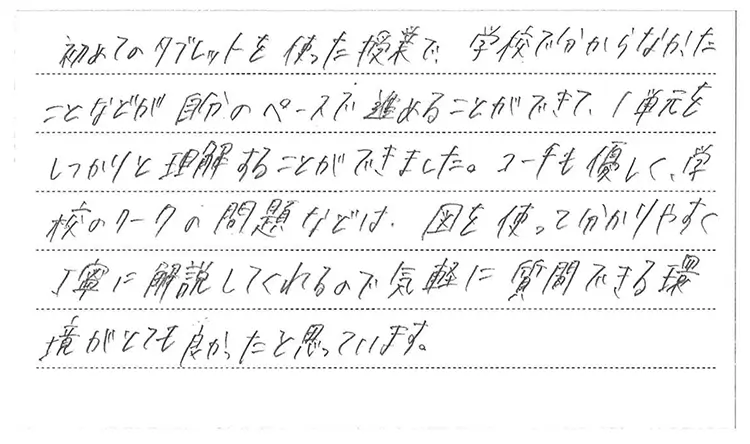 初めてのタブレットを使った授業で、学校で分からなかった
ことなどが自分のペースで進めることができて、1単元を
しっかりと理解することができました。コーチも優しく、学
校のワークの問題などは、図を使って分かりやすく
丁寧に解説してくれるので気軽に質問できる環
境がとても良かったと思っています。